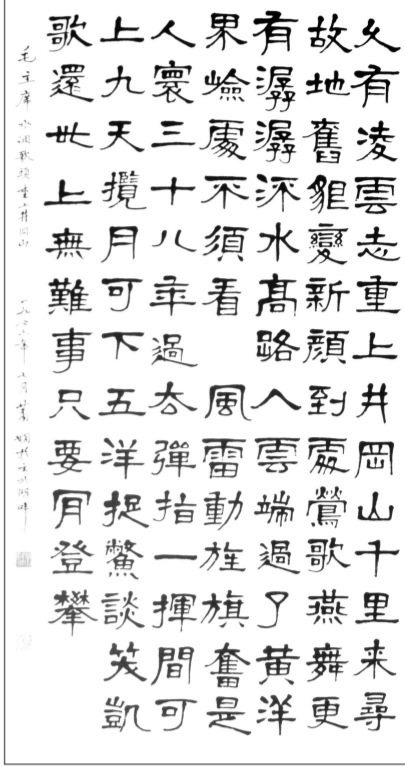 久有凌雲志重上井岡山千里来尋
故地舊貌變新顏到處鶯歌燕舞更
有潺潺流水髙路入雲端過了黃洋
界嶮處不須看 風雷動旌旗奮是
人寰三十八年過去彈指一揮間可
上九天攬月可下五洋捉鱉談笑凱
歌還世上無難事只要肯登攀
毛主席水調歌頭重上井岡山 一九 年七月蕭嫻於玄武湖畔